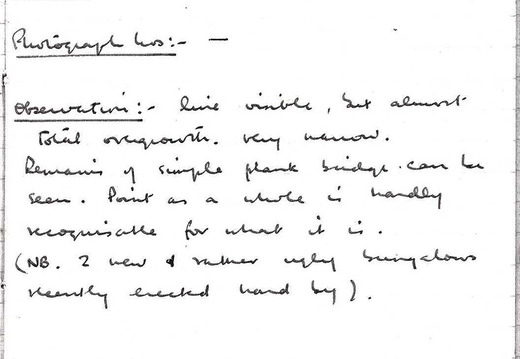 Photograph Nos:- —
Observation:- line visible, but almost
total overgrowth. very narrow.
Remains of simple plank bridge can be
seen. Point as a whole is hardly
recognisable for what it is.
(NB. 2 new & rather ugly bungalows
recently erected hard by).